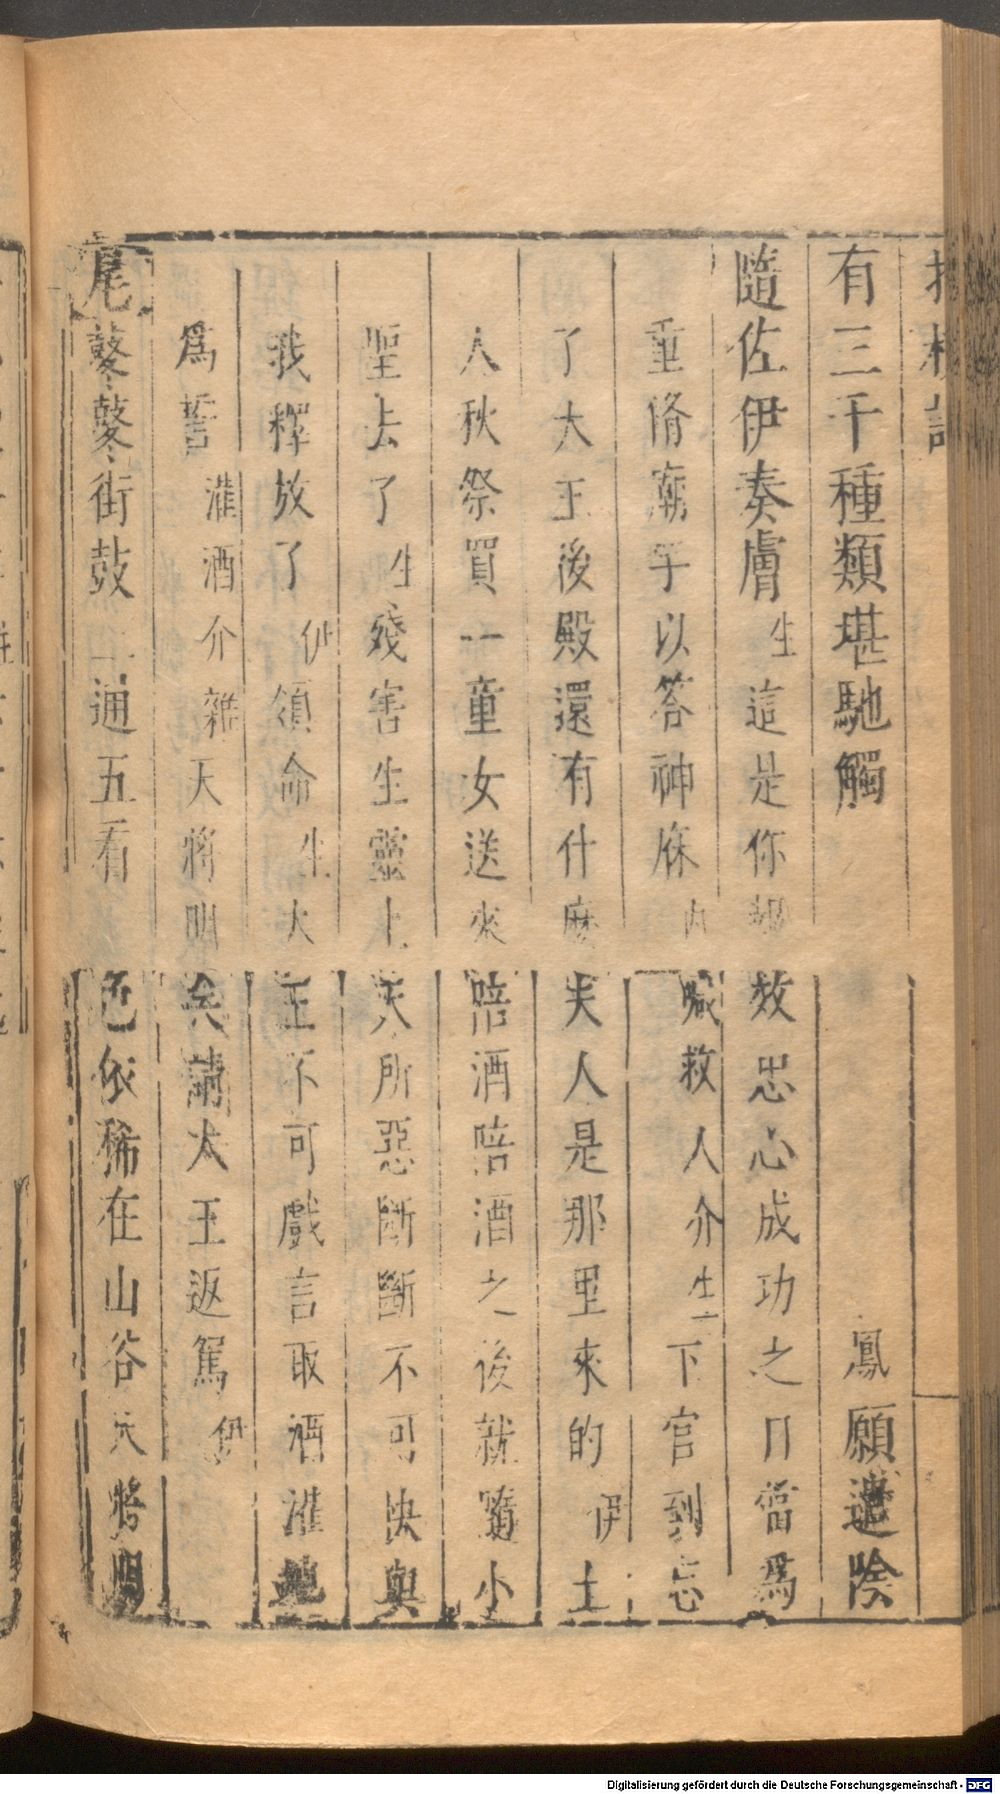 有三千種類堪馳觸鳳願遣陰
隨佐伊奏膚生這是你報效忠心成功之日當爲
重脩廟宇以答神庥內喊救人介生下官到忘
了大王後殿還有什麼夫人是那里來的伊土
人秋祭買一童女送來陪酒陪酒之後就隨小
聖去了生殘害生靈上天所惡斷斷不可快與
我釋放了伊領命生大王不可戲言取酒灌地
爲誓灌酒介雜天將明矣請大王返駕伊
尾鼕鼕街鼓二通五看色依稀在山谷天將明
Digitalisierung gefördert durch die Deutsche Forschungsgemeinschaft - DFG